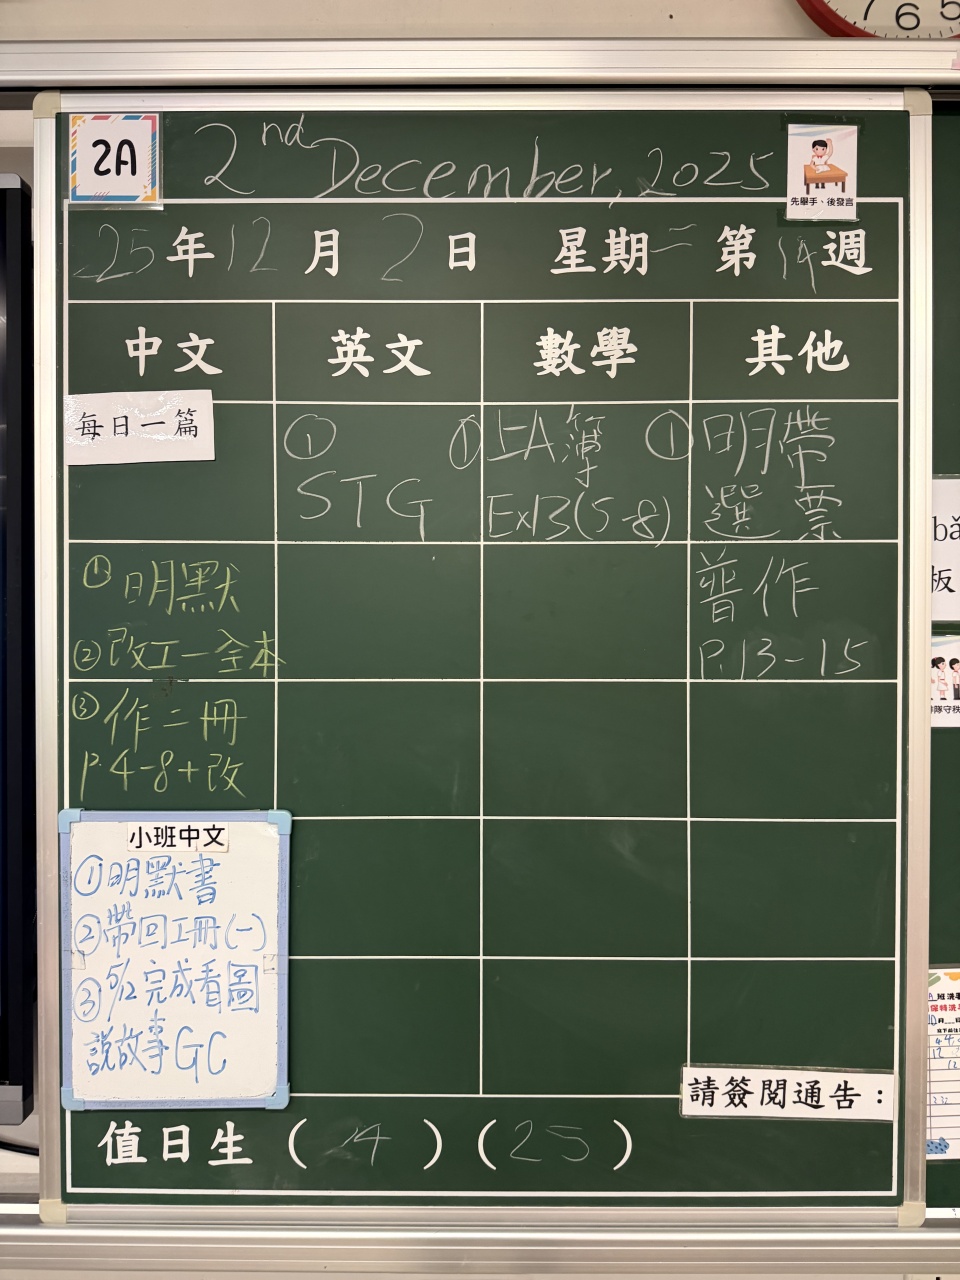 7 6 5
2A
2nd December, 2025
先舉手、後發言
25年12月2日 星期二 第14週
中文 英文 數學 其他
每日一篇
① STG
① 上A簿
Ex13(5-8)
① 明帶
選票
普作
P.13-15
① 明默
② 改工一全本
③ 作二冊
P.4-8+改
小班中文
① 明默書
② 帶回工冊(一)
③ 5/12完成看圖
說故事GC
請簽閱通告：
值日生 (14) (25)
bǎ
板